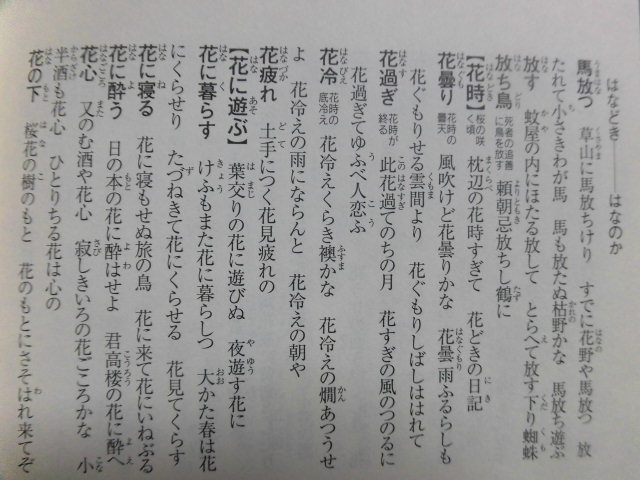 はなどき――はなのか
馬放つ　草山に馬放ちけり　すでに花野や馬放つ　放
たれて小さきわが馬　馬も放たぬ枯野かな　馬放ち遊ぶ
放す　蚊屋の内にほたる放して　とらへて放す下り蜘蛛
放ち鳥 死者の追善に鳥を放す　頼朝忌放ちし鶴に
【花時】 桜の咲く頃　枕辺の花時すぎて　花どきの日記
花曇り 花時の曇天　風吹けど花曇りかな　花曇雨ふるらしも
花ぐもりせる雲間より　花ぐもりしばしははれて
花過ぎ 花時が終る　此花過てのちの月　花すぎの風のつのるに
花過ぎてゆふべ人恋ふ
花冷 花時の底冷え　花冷えくらき襖かな　花冷えの燗あつうせ
よ　花冷えの雨にならんと　花冷えの朝や
花疲れ　土手につく花見疲れの
【花に遊ぶ】　葉交りの花に遊びぬ　夜遊す花に
花に暮らす　けふもまた花に暮らしつ　大かた春は花
にくらせり　たづねきて花にくらせる　花見てくらす
花に寝る　花に寝もせぬ旅の鳥　花に来て花にいねぶる
花に酔う　日の本の花に酔はせよ　君高楼の花に酔へ
花心　又のむ酒や花心　寂しきいろの花ごころかな　小
半酒も花心　ひとりちる花は心の
花の下　桜花の樹のもと　花のもとにさそはれ来てぞ